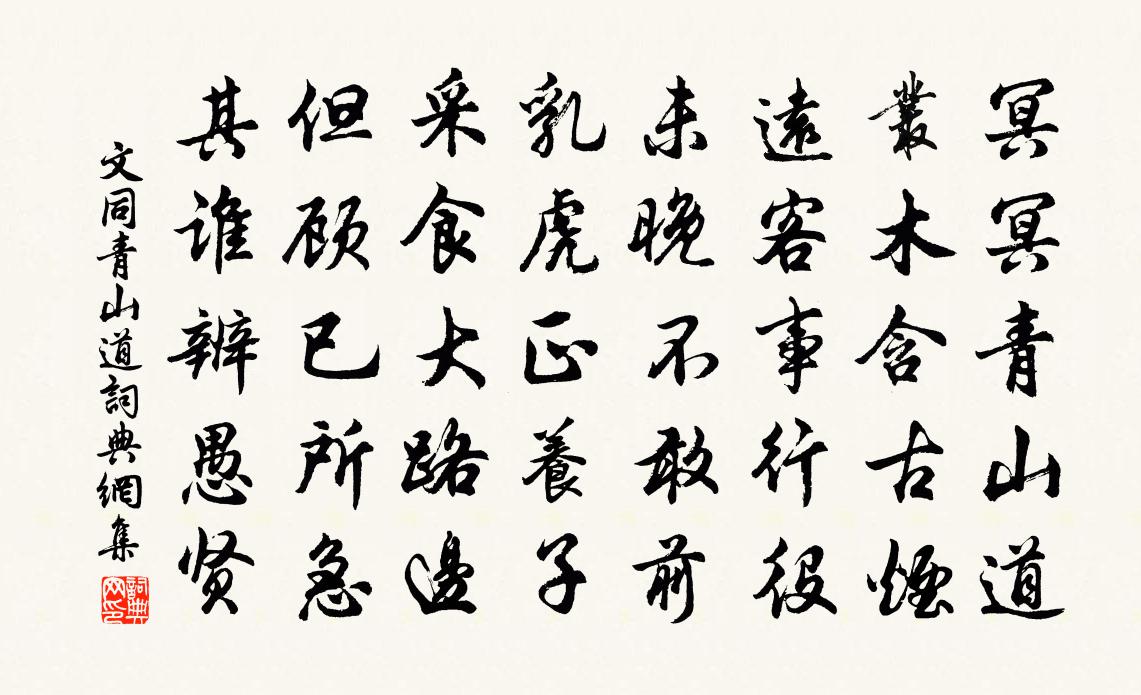 冥冥青山道
叢木含古煙
遠客事行役
未晚不敢前
乳虎正養子
采食大路邊
但顾已所急
其誰辨愚贤
文同青山道詞典網集
詞典网印